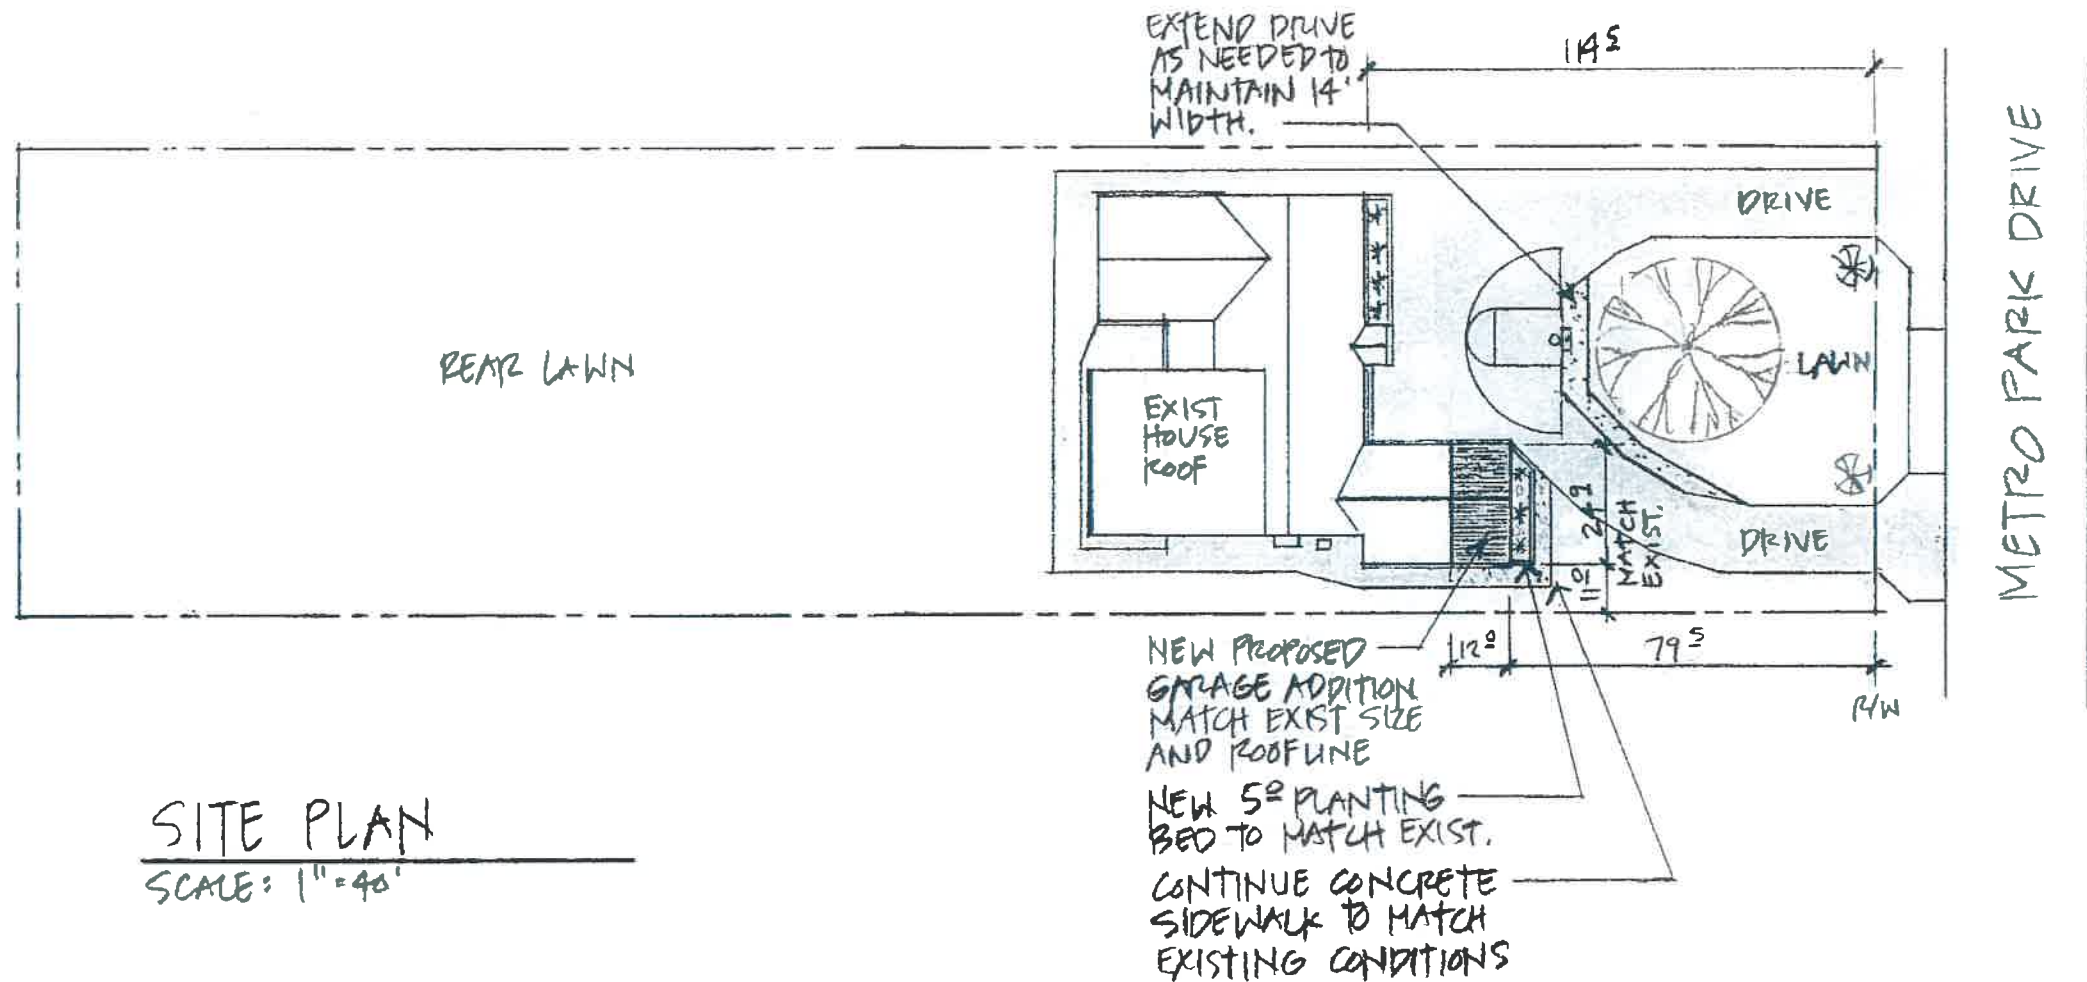 EXTEND DRIVE
AS NEEDED TO
MAINTAIN 14'
WIDTH.
114⁵
DRIVE
METRO PARK DRIVE
REAR LAWN
LAWN
EXIST
HOUSE
ROOF
24⁹
MATCH
EXIST.
11⁰
DRIVE
NEW PROPOSED
GARAGE ADDITION
MATCH EXIST SIZE
AND ROOFLINE
12⁰
79⁵
R/W
NEW 5⁰ PLANTING
BED TO MATCH EXIST.
CONTINUE CONCRETE
SIDEWALK TO MATCH
EXISTING CONDITIONS
SITE PLAN
SCALE: 1"=40'